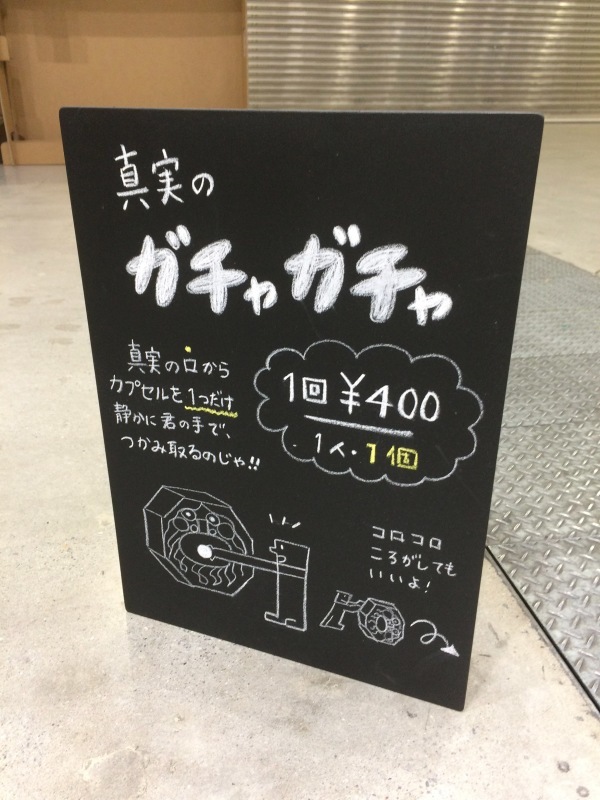 真実の
ガチャガチャ
真実の口から
カプセルを1つだけ
静かに君の手で、
つかみ取るのじゃ!!
1回¥400
1人・1個
コロコロ
ころがしても
いいよ!